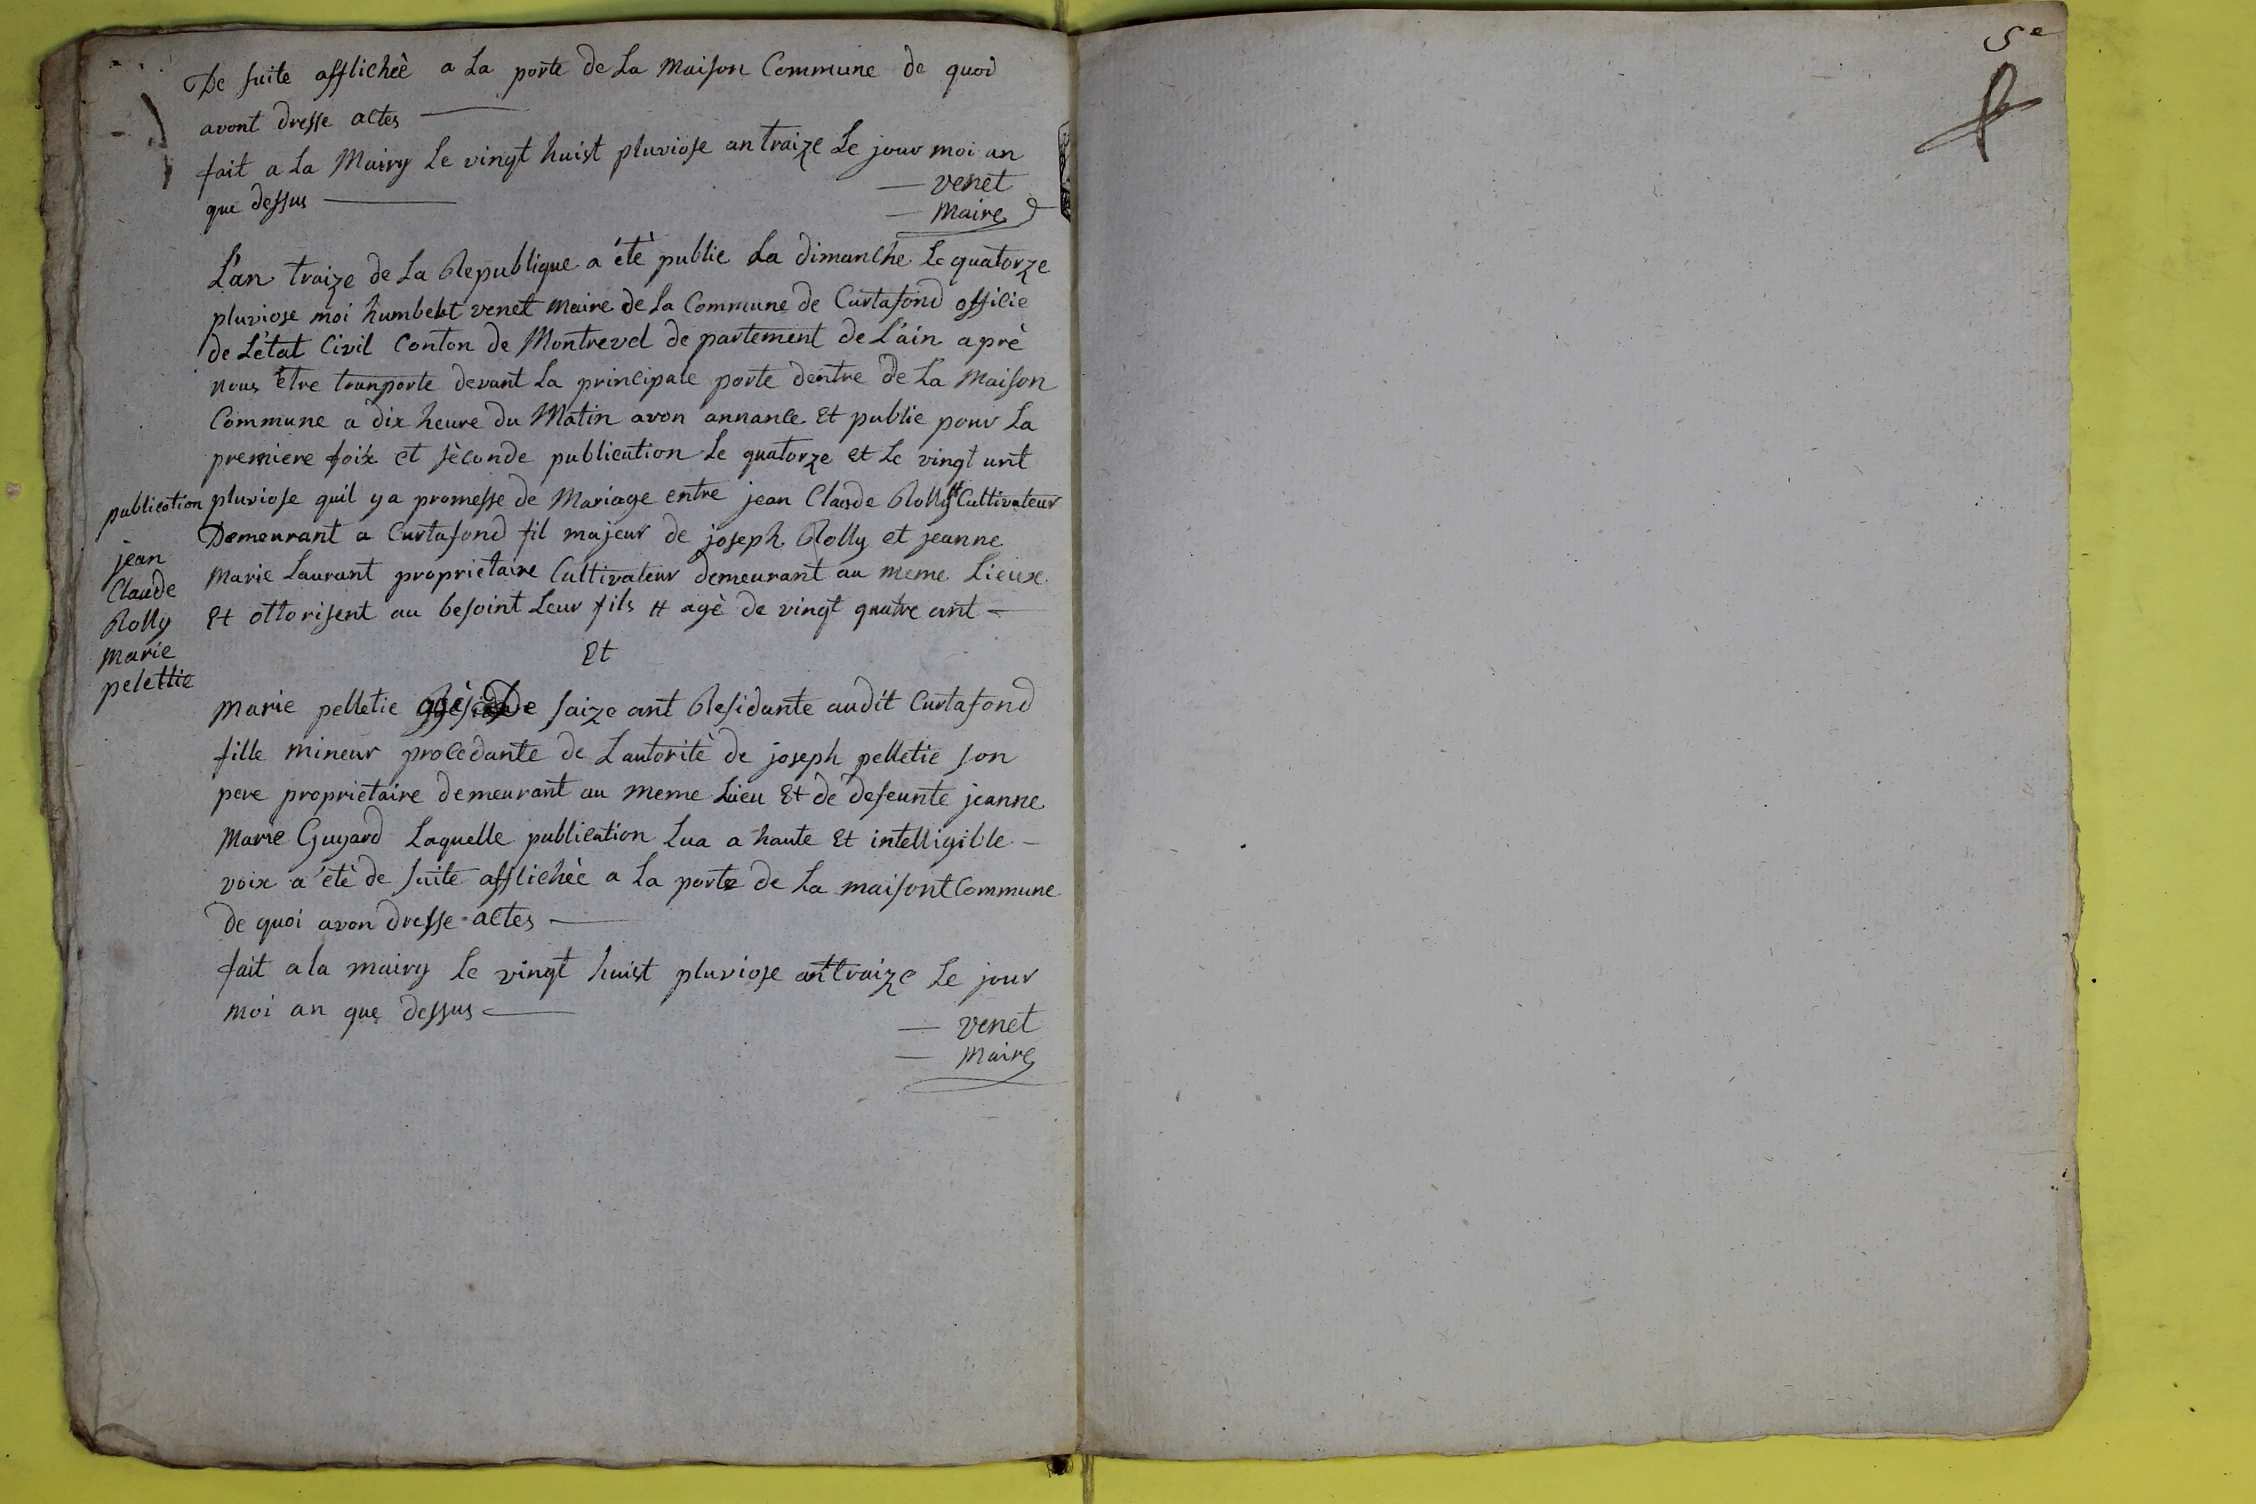 De suite afflichèè a La porte de La Maison Commune de quoi
avont dresse actes
fait a La Mairy Le vingt huist pluviose an traize Le jour moi an
que dessus
venet
Maire
L'an traize de La Republique a été publie La dimanche Le quatorze
pluviose moi humbelt venet Maire de La Commune de Curtafond officie
de L'état Civil Conton de Montrevel de partement de L'ain aprè
nous être tranporte devant La principale porte dentre de La Maison
Commune a dix heure du Matin avon annance Et publie pour La
premiere foix et sèconde publication Le quatorze et Le vingt unt
pluviose quil y a promesse de Mariage entre jean Claude Rolly # Cultivateur
Demeurant a Curtafond fil majeur de joseph Rolly et jeanne
Marie Laurant proprietaire Cultivateur demeurant au meme Lieux
Et ottorisent au besoint Leur fils # agè de vingt quatre ant
Et
publication
jean
Claude
Rolly
Marie
pelettie
Marie pelletie de saize ant Residante audit Curtafond
fille mineur procedante de Lautoritè de joseph pelletie son
pere proprietaire demeurant au meme Lieu Et de defeunte jeanne
Marie Guyard Laquelle publication Lua a haute Et intelligible
voix a étè de suite afflichèe a La porte de La maisont Commune
de quoi avon dresse actes
fait a la mairy Le vingt huist pluviose ant traize Le jour
moi an que dessus
venet
Maire
5e